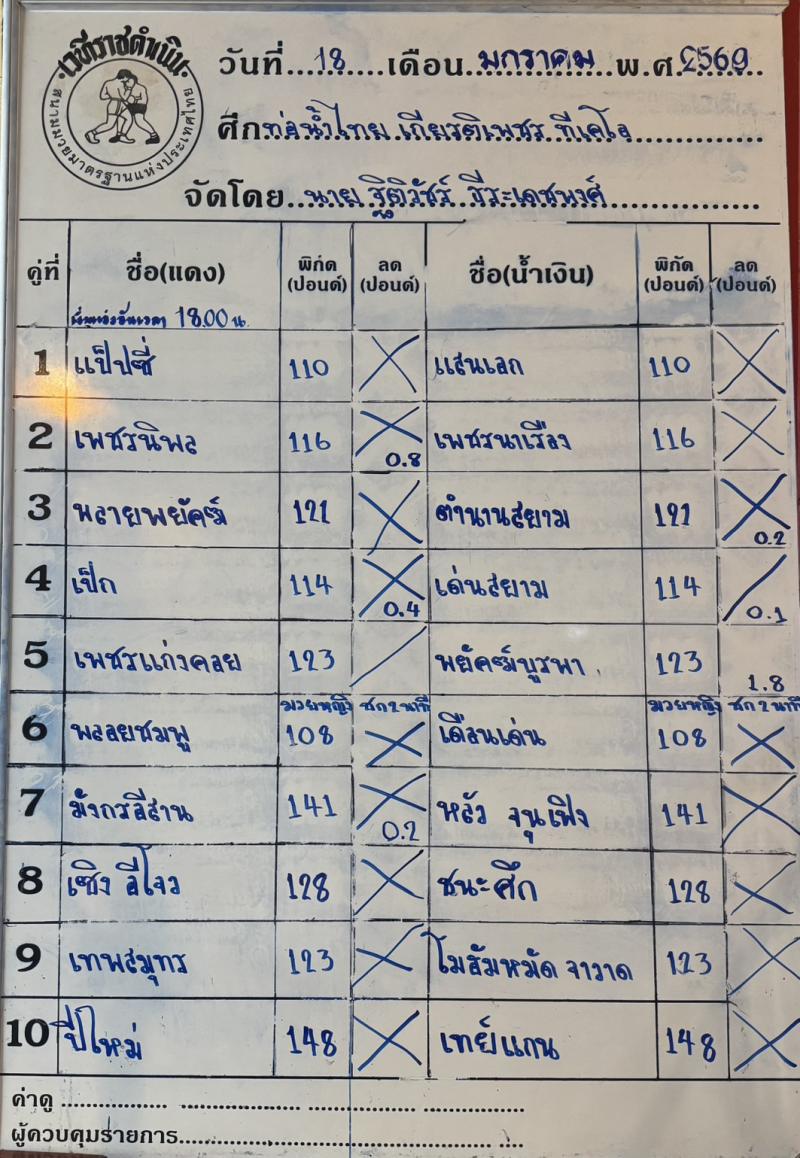 เวทีราชดำเนิน
สนามมวยมาตรฐานแห่งประเทศไทย
วันที่...18.....เดือน..มกราคม...พ.ศ.2569..
ศึกท่อน้ำไทย เกียรติเพชร ทีเคโอ..............
จัดโดย..นาย ฐิติวัชร์ ธีระเดชพงศ์................
คู่ที่ ชื่อ(แดง) พิกัด (ปอนด์) ลด (ปอนด์) ชื่อ(น้ำเงิน) พิกัด (ปอนด์) ลด (ปอนด์)
18.00 น.
1 แป็ปซี่ 110 แสนเลก 110
2 เพชรนิพล 116 0.8 เพชรนาเรือง 116
3 พลายพยัคฆ์ 121 ตำนานสยาม 121 0.2
4 เป็ก 114 0.4 เด่นสยาม 114 0.1
5 เพชรแก่งคอย 123 พยัคฆ์บูรพา 123 1.8
มวยหญิง ชก 2 นาที มวยหญิง ชก 2 นาที
6 พลอยชมพู 108 เดือนเด่น 108
7 มังกรอีสาน 141 0.2 หลัว จุนเฟิง 141
8 เซิง อีโจว 128 ชนะศึก 128
9 เทพสมุทร 123 โมฮัมหมัด จาวาด 123
10 ปี่ใหม่ 148 เทย์แกน 148
ค่าดู
ผู้ควบคุมรายการ